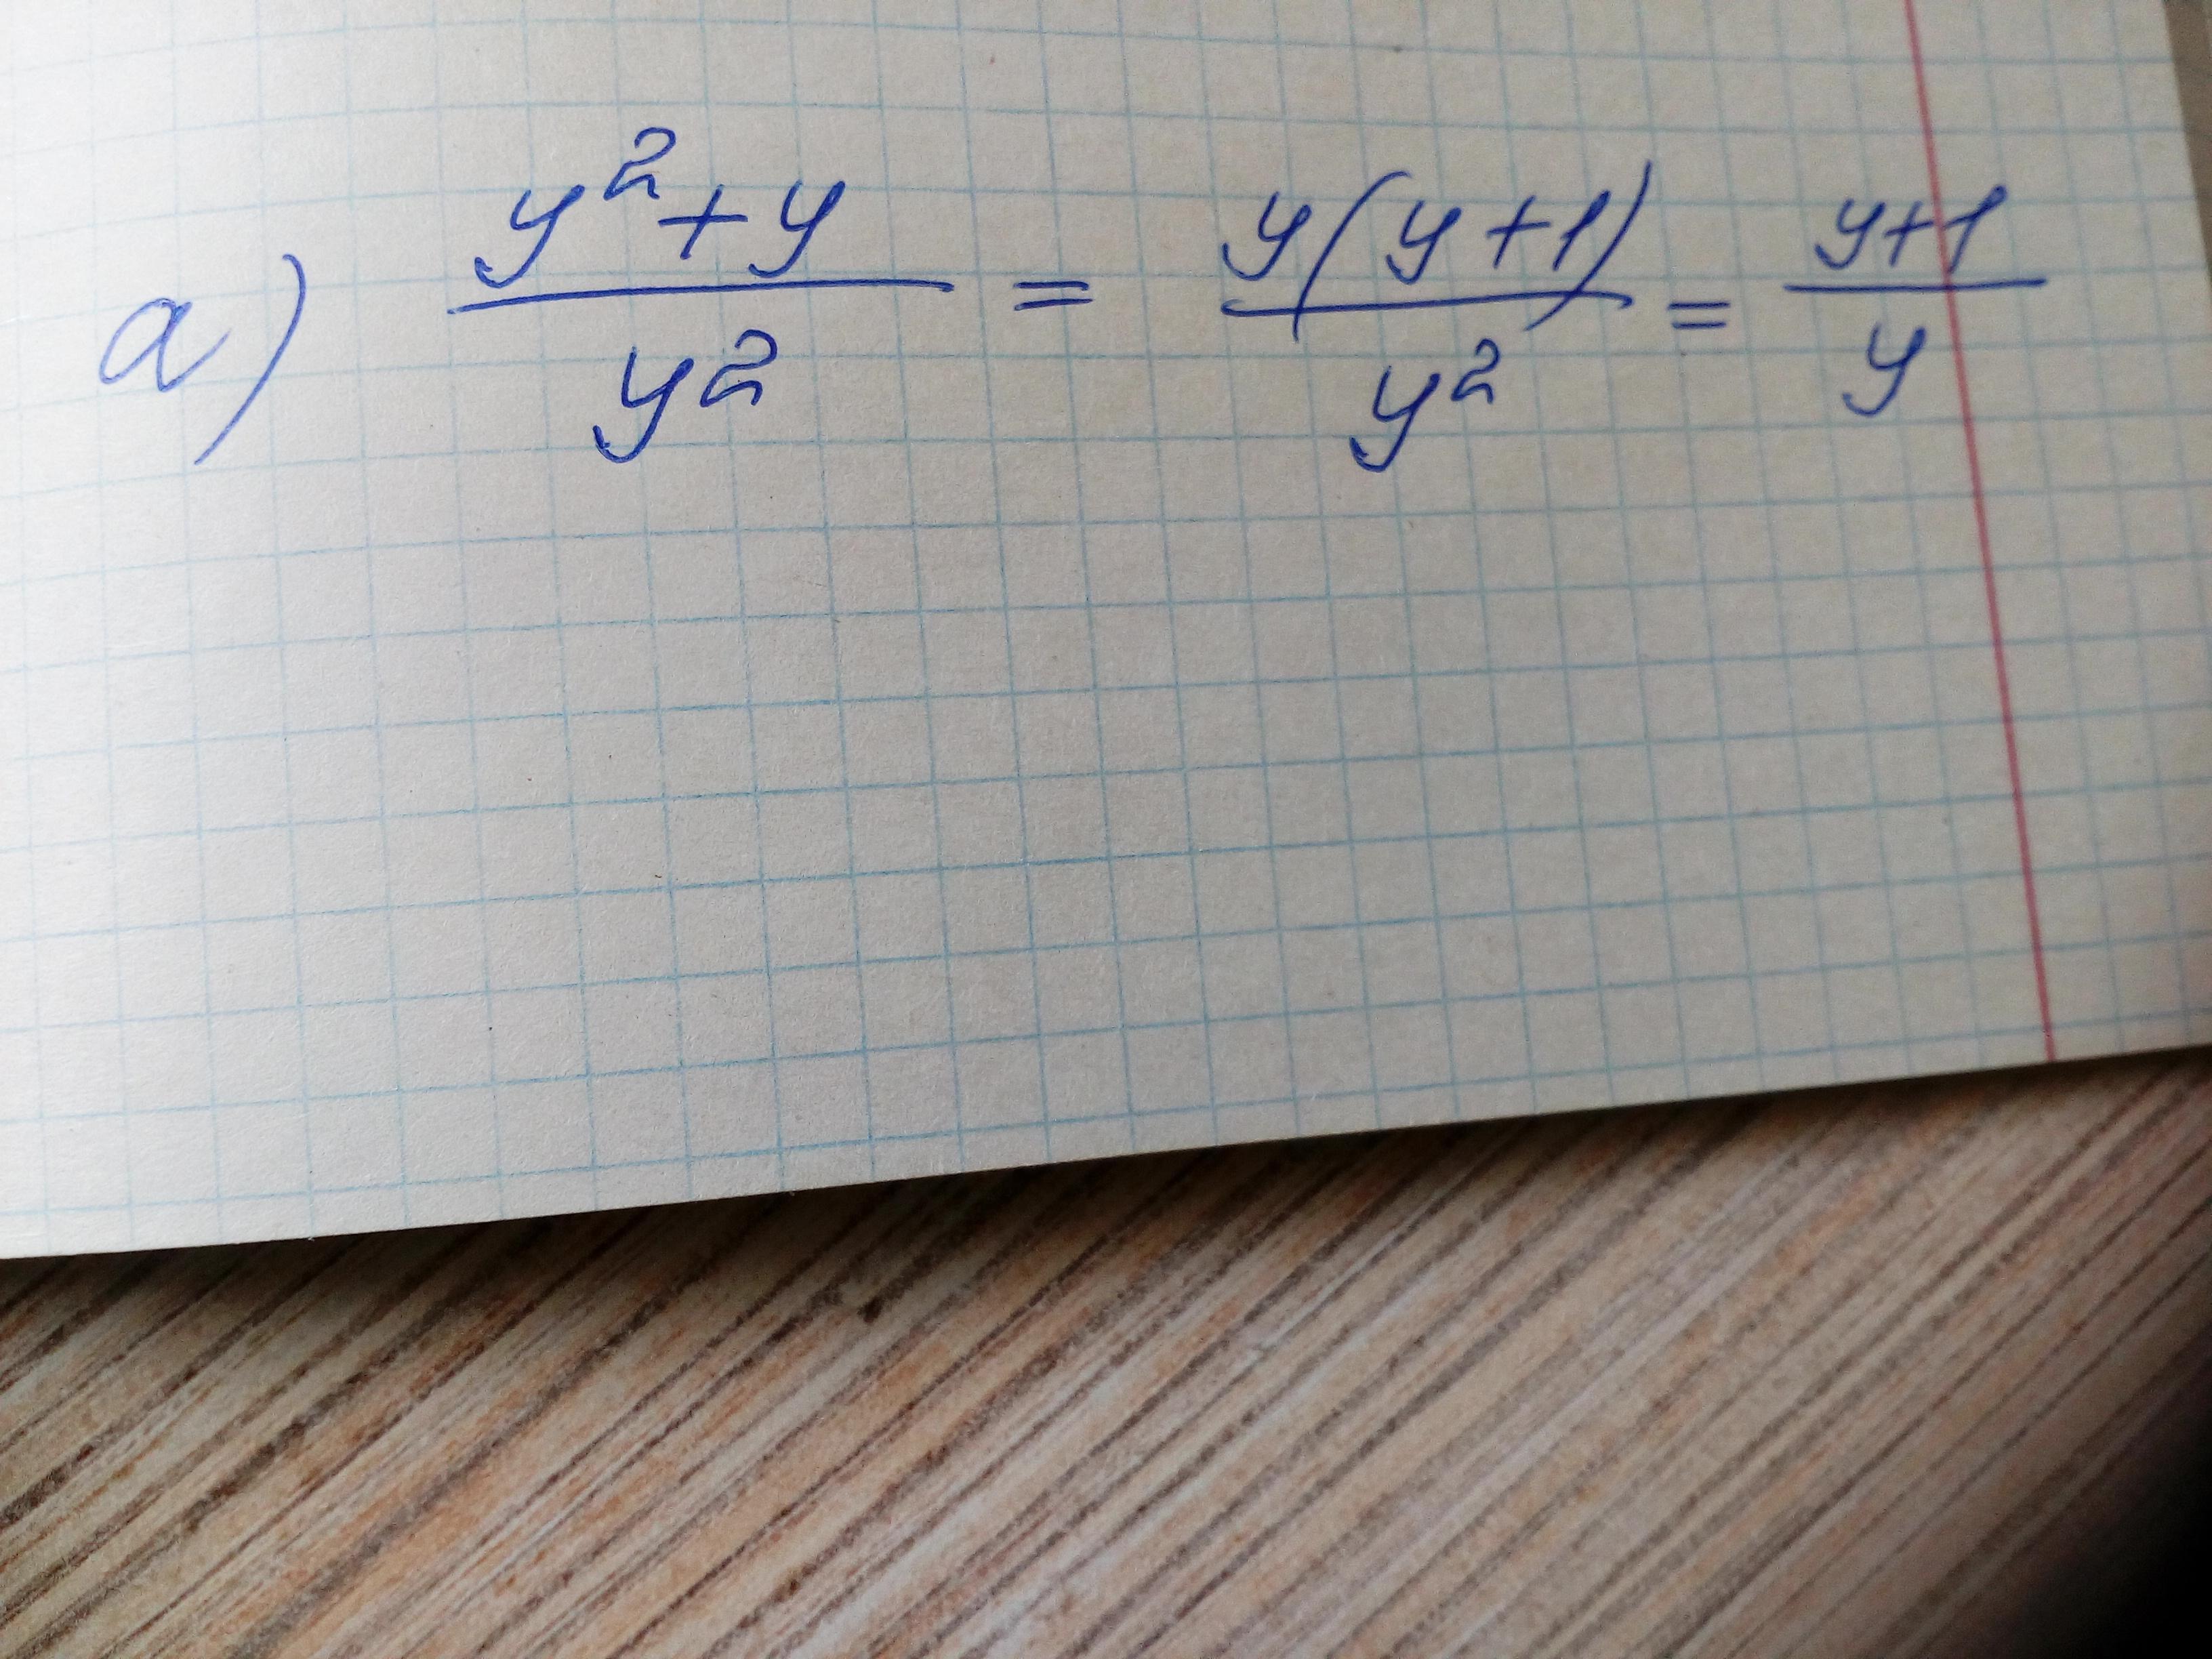 а) (y²+y)/y² = y(y+1)/y² = (y+1)/y